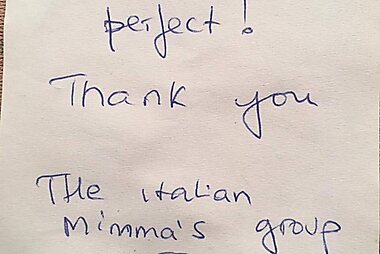 perfect!
Thank you
THe italian
Mimma's group